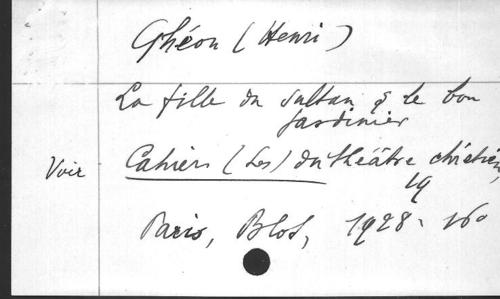 Ghéon (Henri)
La fille du sultan & le bon
jardinier
Voir Cahiers (Les) du théâtre chrétien,
19
Paris, Blot, 1928. 16°